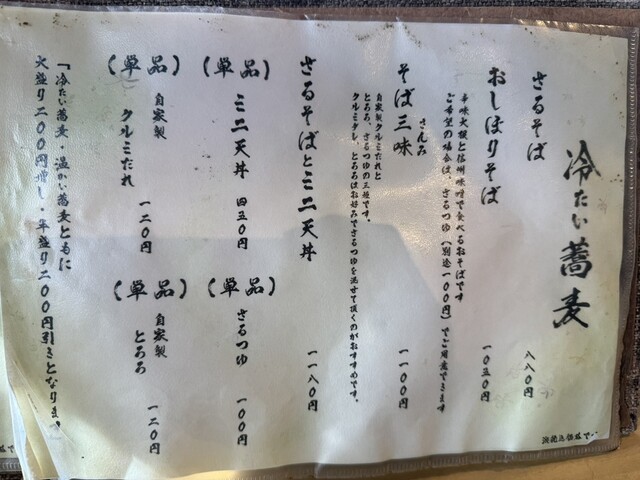 冷たい蕎麦
ざるそば 八八〇円
おしぼりそば 一〇五〇円
辛味大根と信州味噌で食べるおそばです
ご希望の場合は、ざるつゆ(別途一〇〇円)でご用意できます
さんみ
そば三味 一一〇〇円
自家製クルミだれと
とろろ、ざるつゆの三姫です。
クルミダレ、とろろはお好みでざるつゆを混ぜて頂くのがおすすめです。
ざるそばとミニ天丼 一一八〇円
(単品)
ミニ天丼 四五〇円
(単品)
ざるつゆ 一〇〇円
(単品)
自家製
クルミだれ 一二〇円
(単品)
自家製
とろろ 一二〇円
「冷たい蕎麦・温かい蕎麦ともに
大盛り二〇〇円増し・半盛り二〇〇円引きとなります